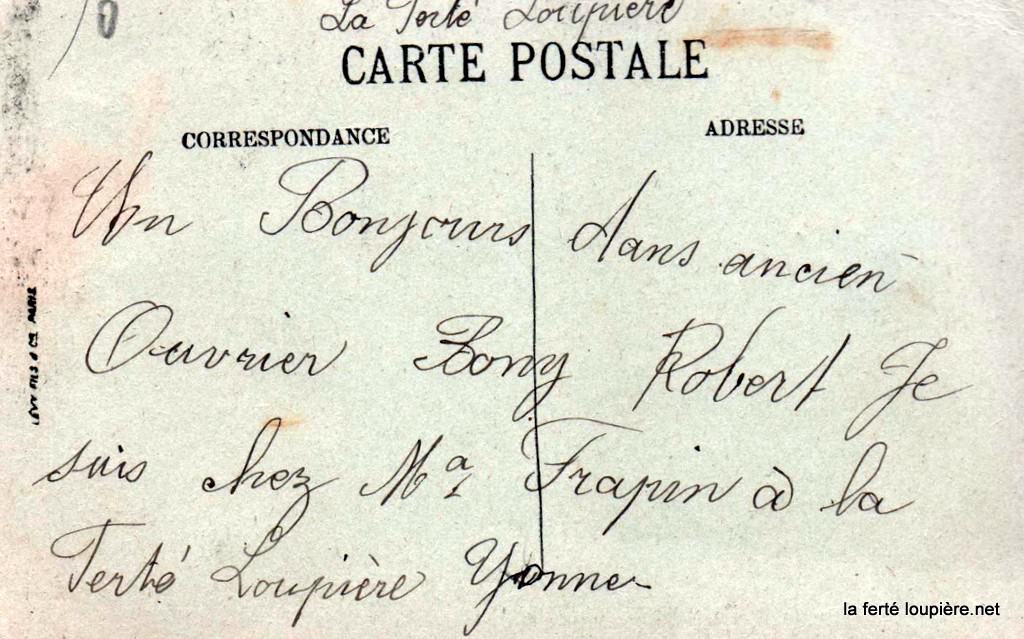 La Ferté Loupière
CARTE POSTALE
CORRESPONDANCE
ADRESSE
Un Bonjours dans ancien
Ouvrier Bony Robert Je
suis chez Mª Frapin à la
Ferté Loupière Yonne
LÉVY FILS & Cie PARIS
la ferté loupière.net